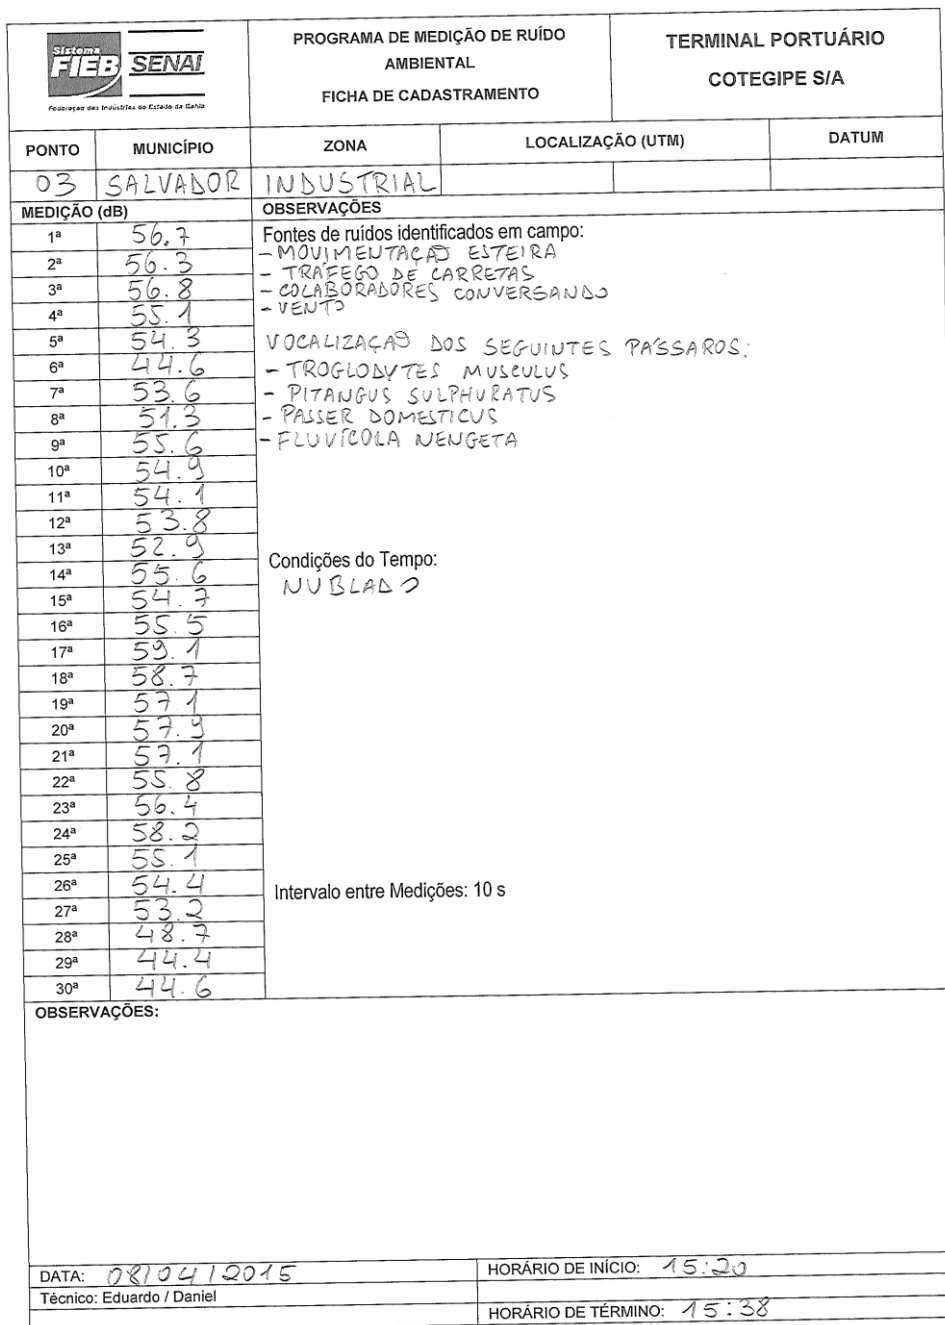 Sistema
FIEB SENAI
Federação das Indústrias do Estado da Bahia
PROGRAMA DE MEDIÇÃO DE RUÍDO
AMBIENTAL
FICHA DE CADASTRAMENTO
TERMINAL PORTUÁRIO
COTEGIPE S/A
PONTO MUNICÍPIO ZONA LOCALIZAÇÃO (UTM) DATUM
03 SALVADOR INDUSTRIAL
MEDIÇÃO (dB) OBSERVAÇÕES
1ª 56.7
2ª 56.3
3ª 56.8
4ª 55.1
5ª 54.3
6ª 44.6
7ª 53.6
8ª 51.3
9ª 55.6
10ª 54.9
11ª 54.1
12ª 53.8
13ª 52.9
14ª 55.6
15ª 54.7
16ª 55.5
17ª 59.1
18ª 58.7
19ª 57.1
20ª 57.9
21ª 57.1
22ª 55.8
23ª 56.4
24ª 58.2
25ª 55.1
26ª 54.4
27ª 53.2
28ª 48.7
29ª 44.4
30ª 44.6
Fontes de ruídos identificados em campo:
- MOVIMENTAÇÃO ESTEIRA
- TRÁFEGO DE CARRETAS
- COLABORADORES CONVERSANDO
- VENTO
VOCALIZAÇÃO DOS SEGUINTES PÁSSAROS:
- TROGLODYTES MUSCULUS
- PITANGUS SULPHURATUS
- PASSER DOMESTICUS
- FLUVÍCOLA NENGETA
Condições do Tempo:
NUBLADO
Intervalo entre Medições: 10 s
OBSERVAÇÕES:
DATA: 08/04/2015 HORÁRIO DE INÍCIO: 15:20
Técnico: Eduardo / Daniel
HORÁRIO DE TÉRMINO: 15:38